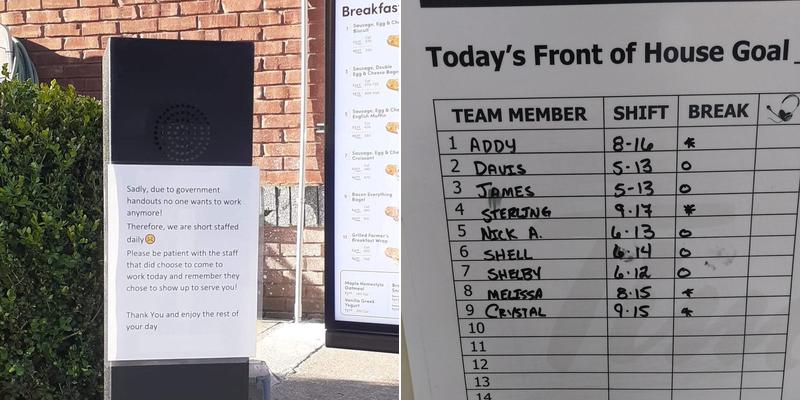 Sadly, due to government
handouts no one wants to work
anymore!
Therefore, we are short staffed
daily☹
Please be patient with the staff
that did choose to come to
work today and remember they
chose to show up to serve you!
Thank You and enjoy the rest of
your day
Breakfas
1 Sausage, Egg & Ch
Biscuit
Sausage, Double
Egg & Cheese Bage
Sausage, Egg & Che
English Muffin
Sausage, Egg & Che
Croissant
Bacon Everything
Bagel
Grilled Farmer's
Breakfast Wrap
Maple Homestyle
Oatmeal
Vanilla Greek
Yogurt
Today's Front of House Goal
TEAM MEMBER SHIFT BREAK
1 ADDY 8-16 *
2 DAVIS 5-13 o
3 JAMES 5-13 o
4 STERLING 9-17 *
5 NICK A. 6-13 o
6 SHELL 6-14 o
7 SHELBY 6-12 o
8 MELISSA 8-15 *
9 CRYSTAL 9-15 *
10
11
12
13
14